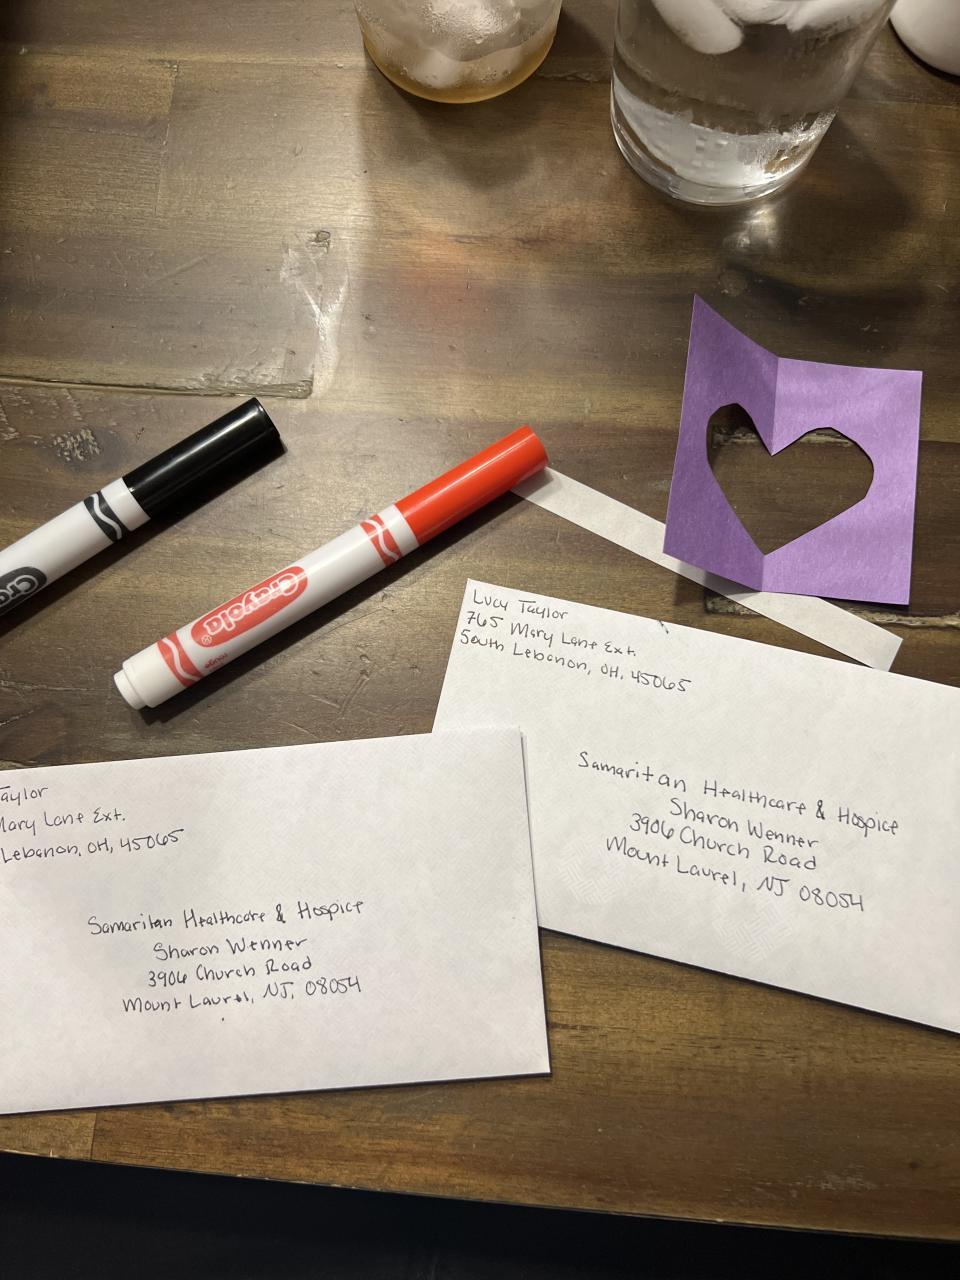 Crayola
Crayola
rouge
Lucy Taylor
765 Mary Lane Ext.
South Lebanon, OH, 45065
Samaritan Healthcare & Hospice
Sharon Wenner
3906 Church Road
Mount Laurel, NJ 08054
Taylor
Mary Lane Ext.
Lebanon, OH, 45065
Samaritan Healthcare & Hospice
Sharon Wenner
3906 Church Road
Mount Laurel, NJ, 08054